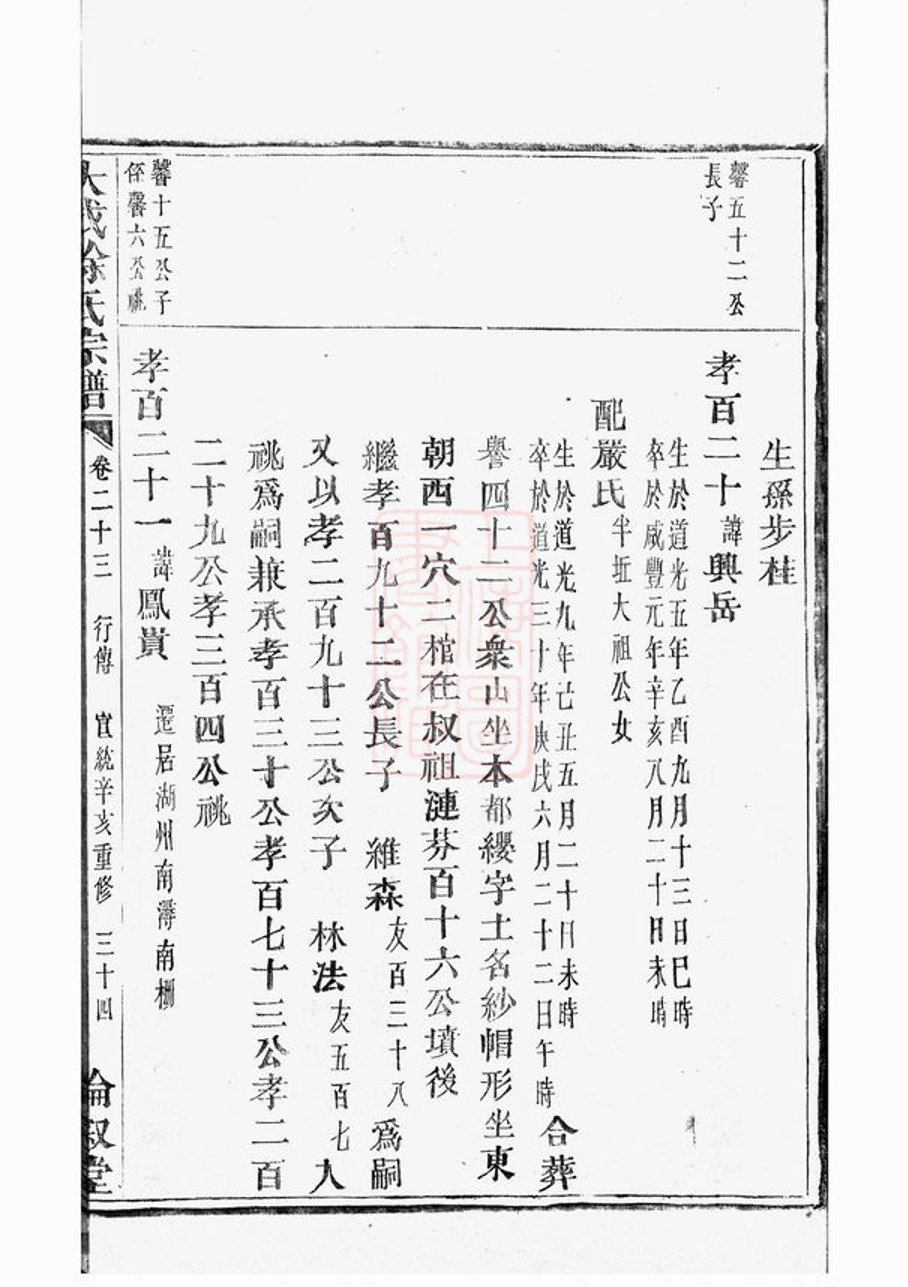 生孫步桂
馨五十二公
長子
孝百二十諱興岳
生於道光五年乙酉九月十三日巳時
卒於咸豐元年辛亥八月二十日未時
配嚴氏半坵大祖公女
生於道光九年己丑五月二十日未時
卒於道光三十年庚戌六月二十二日午時
合葬
譽四十二公衆山坐本都纓字土名紗帽形坐東
朝西一穴二棺在叔祖漣芬百十六公墳後
繼孝百九十二公長子 維森友百三十八為嗣
又以孝二百九十三公次子 林法友五百七人
祧爲嗣兼承孝百三十公孝百七十三公孝二百
二十九公孝三百四公祧
馨十五公子
侄馨六公祧
孝百二十一諱鳳貴 遷居湖州南潯南柵
徐氏宗譜 卷二十三 行傳 宣統辛亥重修 三十四 倫敘堂